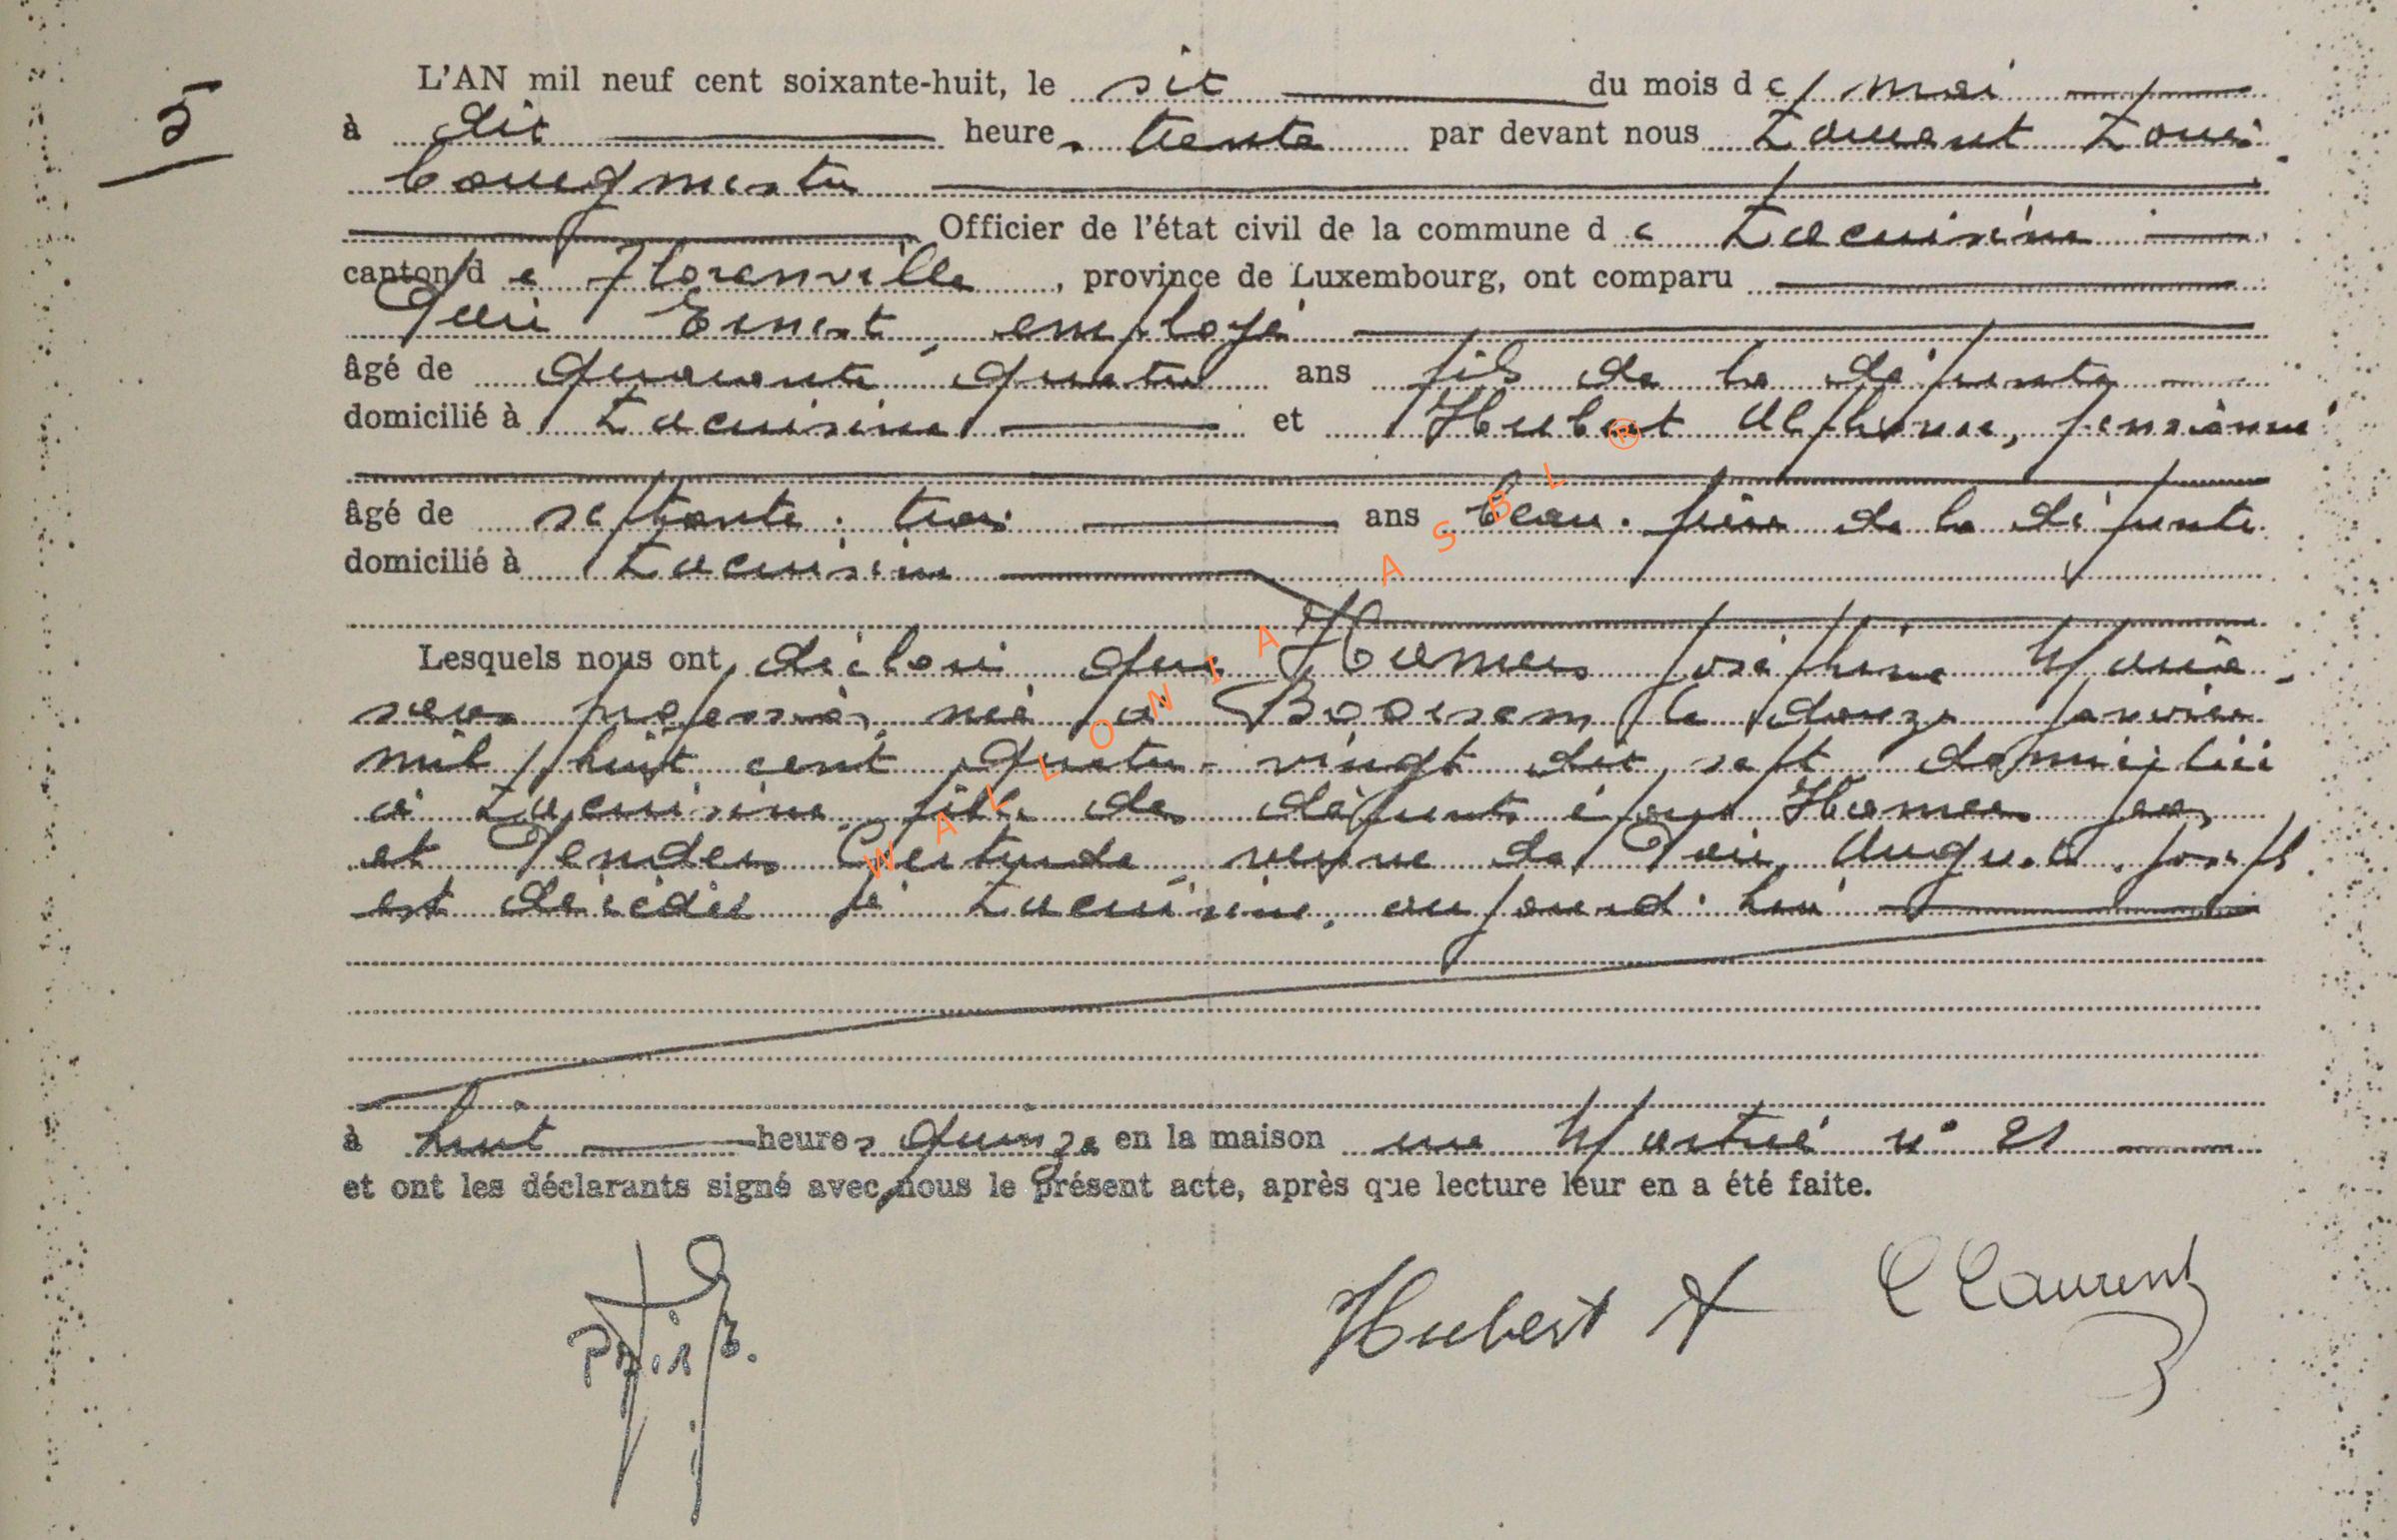 5
L'AN mil neuf cent soixante-huit, le six du mois de mai
à dix heures trente par devant nous Laurent Louis
bourgmestre
Officier de l'état civil de la commune de Lacuisine
canton de Florenville, province de Luxembourg, ont comparu
Ernest, employé
âgé de quarante quatre ans fils de la défunte
domicilié à Lacuisine et Hubert Alphonse, pensionné
âgé de septante-trois ans beau-frère de la défunte
domicilié à Lacuisine
Lesquels nous ont déclaré que Hames Joséphine Marie
sans profession, née à le douze janvier
mil huit cent quatre-vingt dix sept domiciliée
à Lacuisine fille des défunts époux Hames
et Gertrude, veuve de Joseph
est décédée à Lacuisine, aujourd'hui
à huit heures quinze en la maison rue n° 21
et ont les déclarants signé avec nous le présent acte, après que lecture leur en a été faite.
Hubert A
L Laurent
WALLONIA ASBL ®